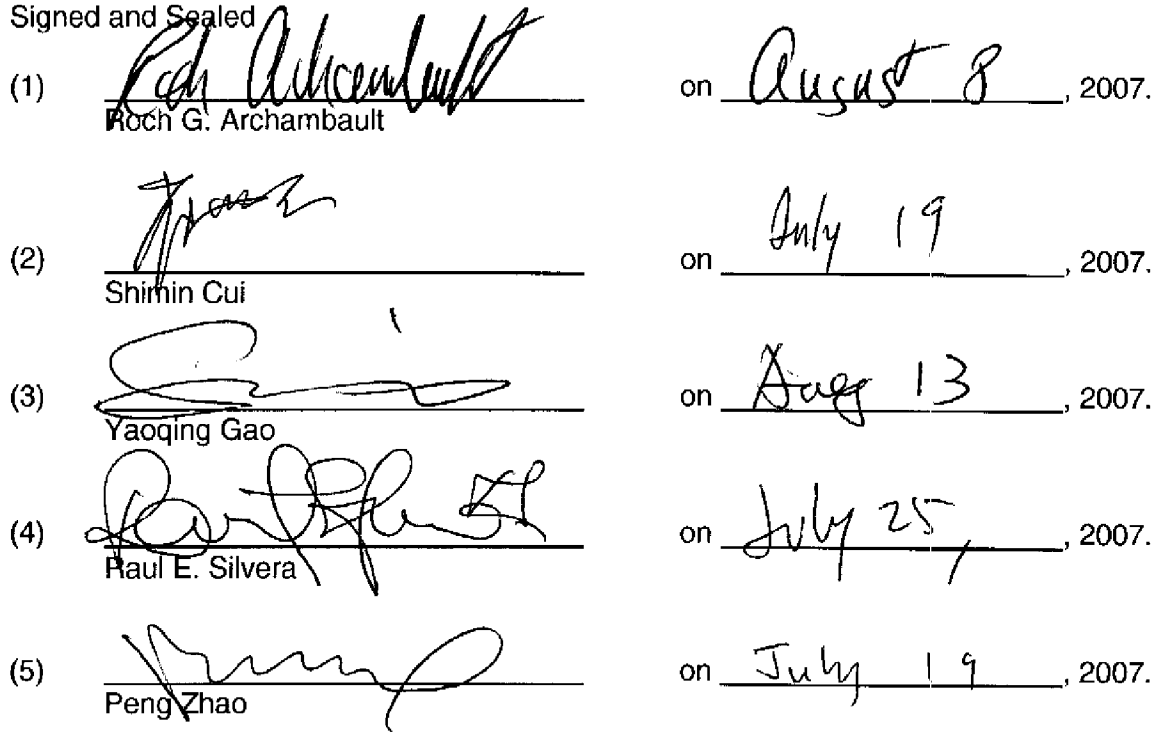 Signed and Sealed
(1) Roch Archambault on August 8, 2007.
Roch G. Archambault
(2) on July 19, 2007.
Shimin Cui
(3) on Aug 13, 2007.
Yaoqing Gao
(4) on July 25, 2007.
Raul E. Silvera
(5) on July 19, 2007.
Peng Zhao